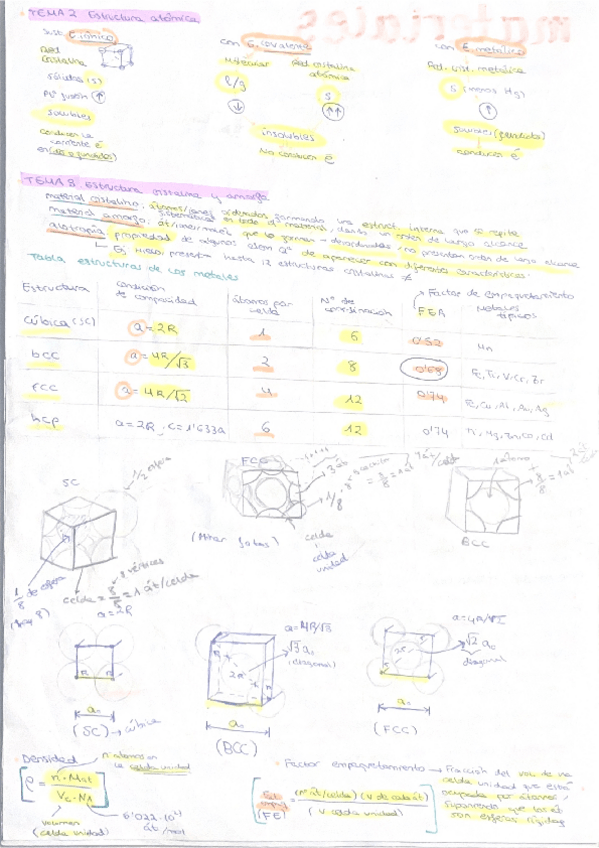 materiales
TEMA 2 Estructura atómica
Sust. E. iónico
con E. covalente
con E. metálico
Red cristalina
Molecular
Red cristalina atómica
Red. crist. metálica
sólidos (s)
l/g
S
S (menos Hg)
Pto fusión ↑
↓
↑↑
↑
solubles
insolubles
conducen la corriente ē
No conducen ē
conducen ē
TEMA 3 Estructura cristalina y amorfa
material cristalino: átomos/iones ordenados formando una estruct. interna que se repite
sistemáticamente en todo el material, dando un orden de largo alcance
material amorfo: át/iones/moléc que lo forman → desordenados, no presentan orden de largo alcance
alotropía propiedad de algunos elem Qº de aparecer con diferentes características.
Ej Hielo, presenta hasta 12 estructuras cristalinas ≠
Tabla estructuras de los metales
Estructura
Condición de compacidad
átomos por celda
Nº de coordinación
Factor de empaquetamiento
FEA
Metales típicos
Cúbica (SC)
a = 2R
1
6
0'52
bcc
a = 4R/√3
2
8
0'68
Fe, Ti, V, Cr, Zr
FCC
a = 4R/√2
4
12
0'74
Fe, Cu, Al, Au, Ag
hcp
a = 2R, c = 1'633a
6
12
0'74
Ti, Mg, Zn, Co, Cd
1/2 esfera
SC
FCC
3 át
4 át/celda
1/8 · 8 = 8/8 = 1 át
BCC
(Mirar fotos)
celda
celda unidad
1/8 de esfera
8 vértices
celda = 8/8 = 1 át/celda
a = 2R
a = 4R/√3
√3 a₀
(diagonal)
a = 4R/√2
√2 a₀
diagonal
R
R
2R
a₀
a₀
a₀
(SC) → cúbica
(BCC)
(FCC)
Densidad
nº átomos en la celda unidad
ρ = n · Mat / Vc · NA
volumen (celda unidad)
6'022·10²³ át/mol
Factor empaquetamiento → Fracción del vol de una
celda unidad que está
ocupada por átomos,
suponiendo que los át
son esferas rígidas
(FE) = (nº át/celda) (V de cada át) / (V celda unidad)